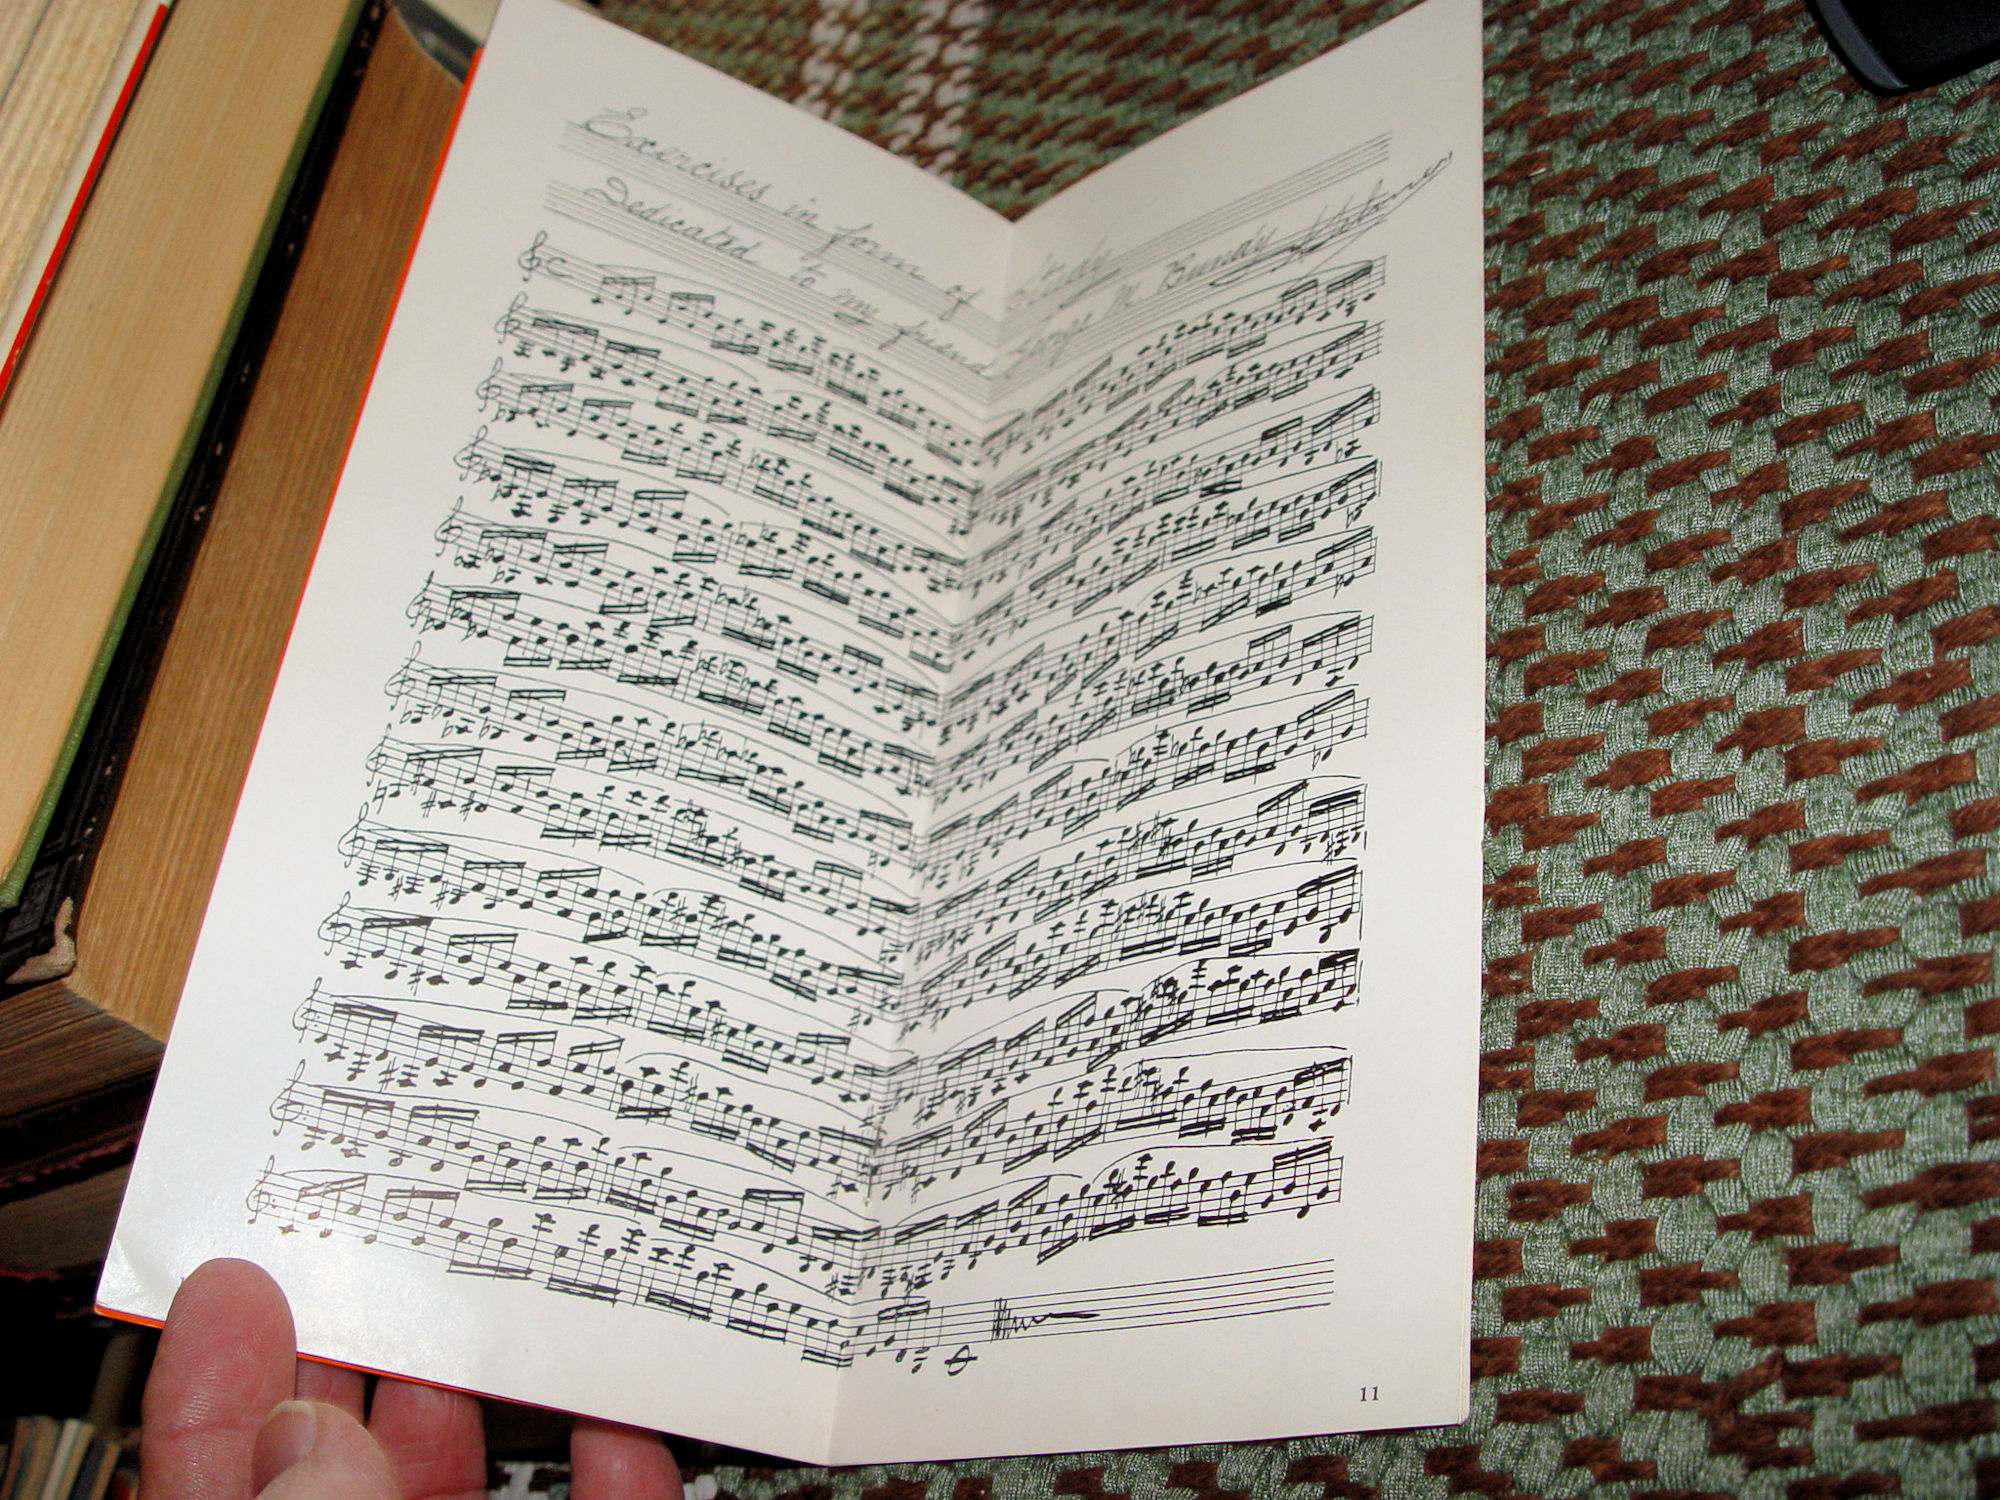 Exercises in form of Study
Dedicated to my friend George M. Bundy
11